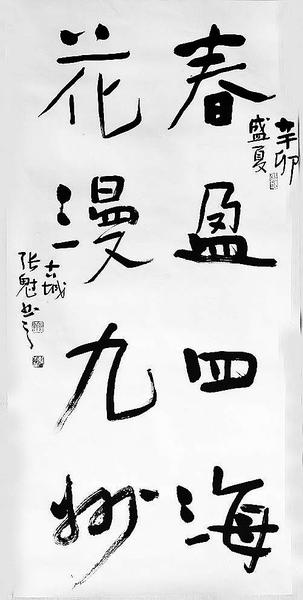 春盈四海
花漫九州
辛卯
盛夏
古城
张魁书之